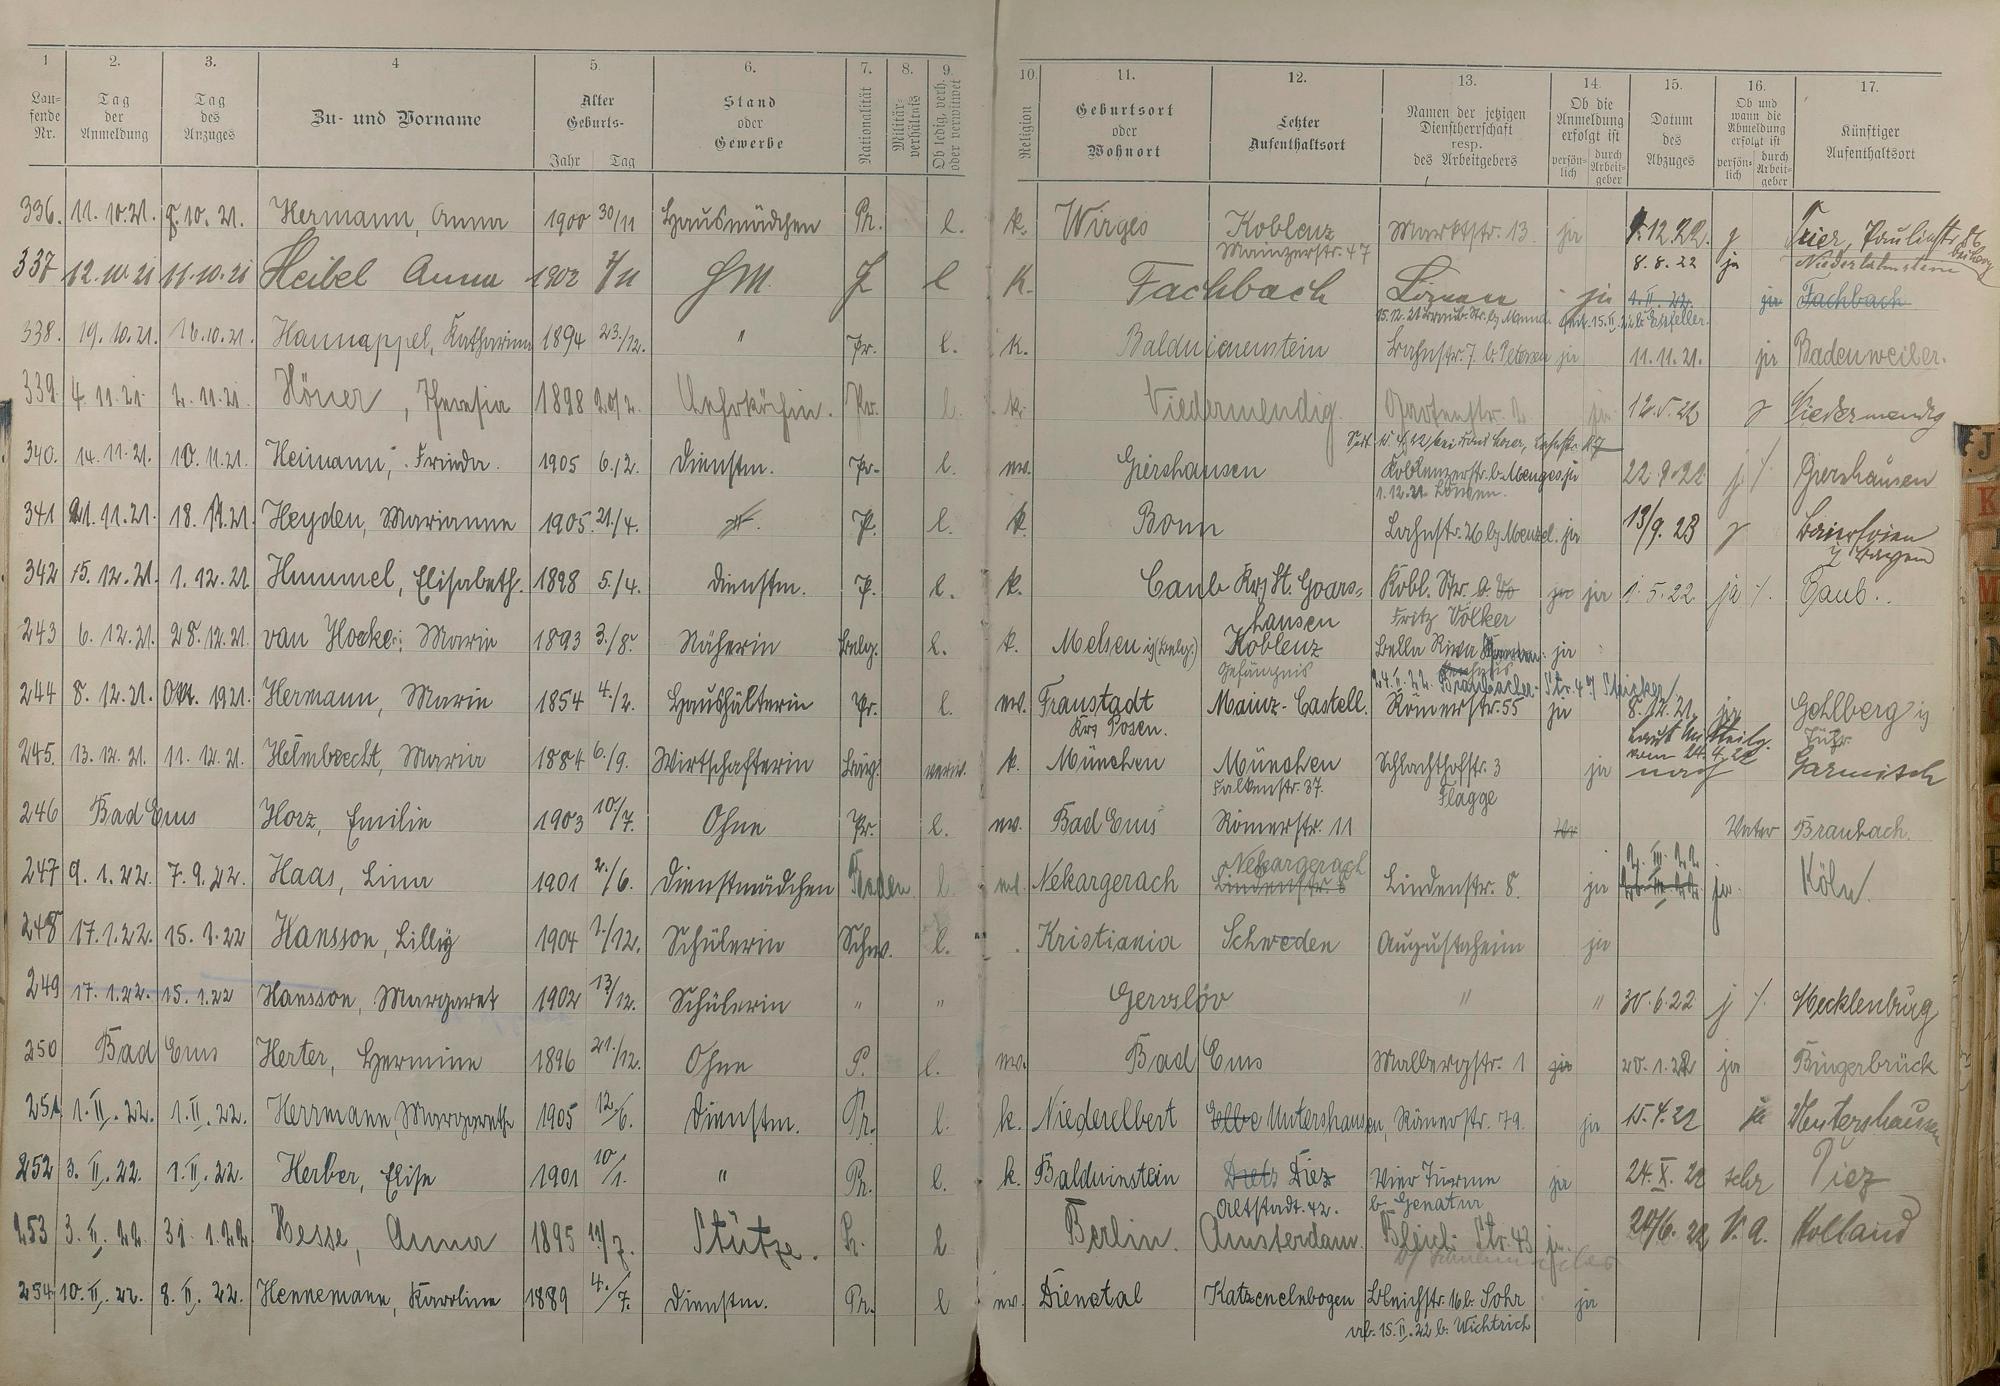 1 2. 3. 4 5. 6. 7. 8. 9. 10. 11. 12. 13. 14. 15. 16. 17.
Lau-
fende
Nr.
Tag
der
Anmeldung
Tag
des
Anzuges
Zu- und Vorname
Alter
Geburts-
Jahr Tag
Stand
oder
Gewerbe
Nationalität
Militär-
verhältnis
Ob ledig, verh.
oder verwitwet
Religion
Geburtsort
oder
Wohnort
Letzter
Aufenthaltsort
Namen der jetzigen
Dienstherrschaft
resp.
des Arbeitgebers
Ob die
Anmeldung
erfolgt ist
persön-
lich
durch
Arbeit-
geber
Datum
des
Abzuges
Ob und
wann die
Abmeldung
erfolgt ist
persön-
lich
durch
Arbeit-
geber
Künftiger
Aufenthaltsort
336. 11. 10. 21. 8. 10. 21. Hermann, Anna 1900 30/11 Hausmädchen Pr. l. k. Wirges Koblenz Marktstr. 13 ja 1. 12. 22. Trier, Paulinstr.
Mainzerstr. 47
8. 8. 22 ja Niederlahnstein
337 12. 10. 21 11. 10. 21 Heibel Anna 1902 l k. Fachbach Löwen ja 1. II. 22. ja Fachbach
338. 19. 10. 21. 16. 10. 21. Hannappel, Katharina 1894 23./12. " Pr. l. k. Balduinenstein Bahnstr. 7 b. Petersen ja 11. 11. 21. ja Badenweiler.
339. 4. 11. 21. 2. 11. 21. Höner, Theresia 1898 20/2. Lehrköchin. Pr. l. k. Niedermendig. Gartenstr. 2 ja 12. 5. 22 Niedermendig
340. 14. 11. 21. 10. 11. 21. Heimann, Frieda. 1905 6./2. Dienstm. Pr. l. ev. Giershausen Koblenzerstr. b. Menges ja 22. 9. 22 j /. Giershausen
1. 12. 21 Löwen.
341 21. 11. 21. 18. 11. 21. Heyden, Marianne 1905. 21./4. P. l. k. Bonn Lahnstr. 26 b/ Menzel. ja 13/9. 23
342 15. 12. 21. 1. 12. 21. Hummel, Elisabeth. 1898 5./4. Dienstm. P. l. k. Caub Krs St. Goars- Kobl. Str. ja ja 1. 5. 22 ja /. Caub.
hausen Fritz Völker
243 6. 12. 21. 28. 12. 21. van Hoeke; Maria 1893 3./8. Näherin Belg. l. k. Melsen i/(Belg.) Koblenz Bella Riva ja
Gefängnis
24. II. 22. Braubacher- Str. 47
244 8. 12. 21. Okt. 1921. Hermann, Marie 1854 4./2. Haushälterin Pr. l. ev. Fraustadt Mainz-Castell. Römerstr. 55 ja 8. 12. 21. ja Gehlberg i/
Krs Posen. Thür.
Laut Mitteilg.
vom 24. 4. 22
245. 13. 12. 21. 11. 12. 21. Helmbrecht, Maria 1884 6./9. Wirtschafterin Bay. verw. k. München München Schlachthofstr. 3 ja nach Garmisch
Falkenstr. 37. Flagge
246 Bad Ems Horz, Emilie 1903 10/7. Ohne Pr. l. ev. Bad Ems Römerstr. 11 Unter Braubach.
Nekargerach 2. III. 22
247 9. 1. 22. 7. 9. 22. Haas, Lina 1901 2./6. Dienstmädchen Baden l. ev. Nekargerach Lindenstr. 8 Lindenstr. 8. ja ja. Köln/
248 17. 1. 22. 15. 1. 22 Hansson, Lilly 1904 1./12. Schülerin Schw. l. Kristiania Schweden Augustaheim ja
249 17. 1. 22. 15. 1. 22 Hansson, Margaret 1902 13/12. Schülerin " " Gerslöv " " 30. 6. 22 j /. Mecklenburg
250 Bad Ems Herter, Hermine 1896 21./12. Ohne P. l. ev. Bad Ems Mallbergstr. 1 ja 20. 1. 22 ja Bingerbrück
251 1. II. 22. 1. II. 22. Herrmann, Margarethe 1905 12/6. Dienstm. Pr. l. k. Niederelbert Elbe Untershausen, Römerstr. 79. ja 15. 4. 22 ja Untershausen
252 3. II. 22. 1. II. 22. Herber, Elise 1901 10/1. " Pr. l. k. Balduinstein Diets Diez Vier Türme ja 24. X. 22 schr Diez
Altstadt. 42. b.
253 3. II. 22. 31. 1. 22 Hesse, Anna 1895 Stütze. Pr. l Berlin. Amsterdam. Bleich-Str. 43 ja. 20/6. 22 V. A. Holland
254 10. II. 22. 8. II. 22. Hennemann, Karoline 1889 4./7. Dienstm. Pr. l ev. Dienetal Katzenelnbogen Bleichstr. 16 b. Sohr ja
vrb. 15. II. 22 b. Wichtrich
J
K